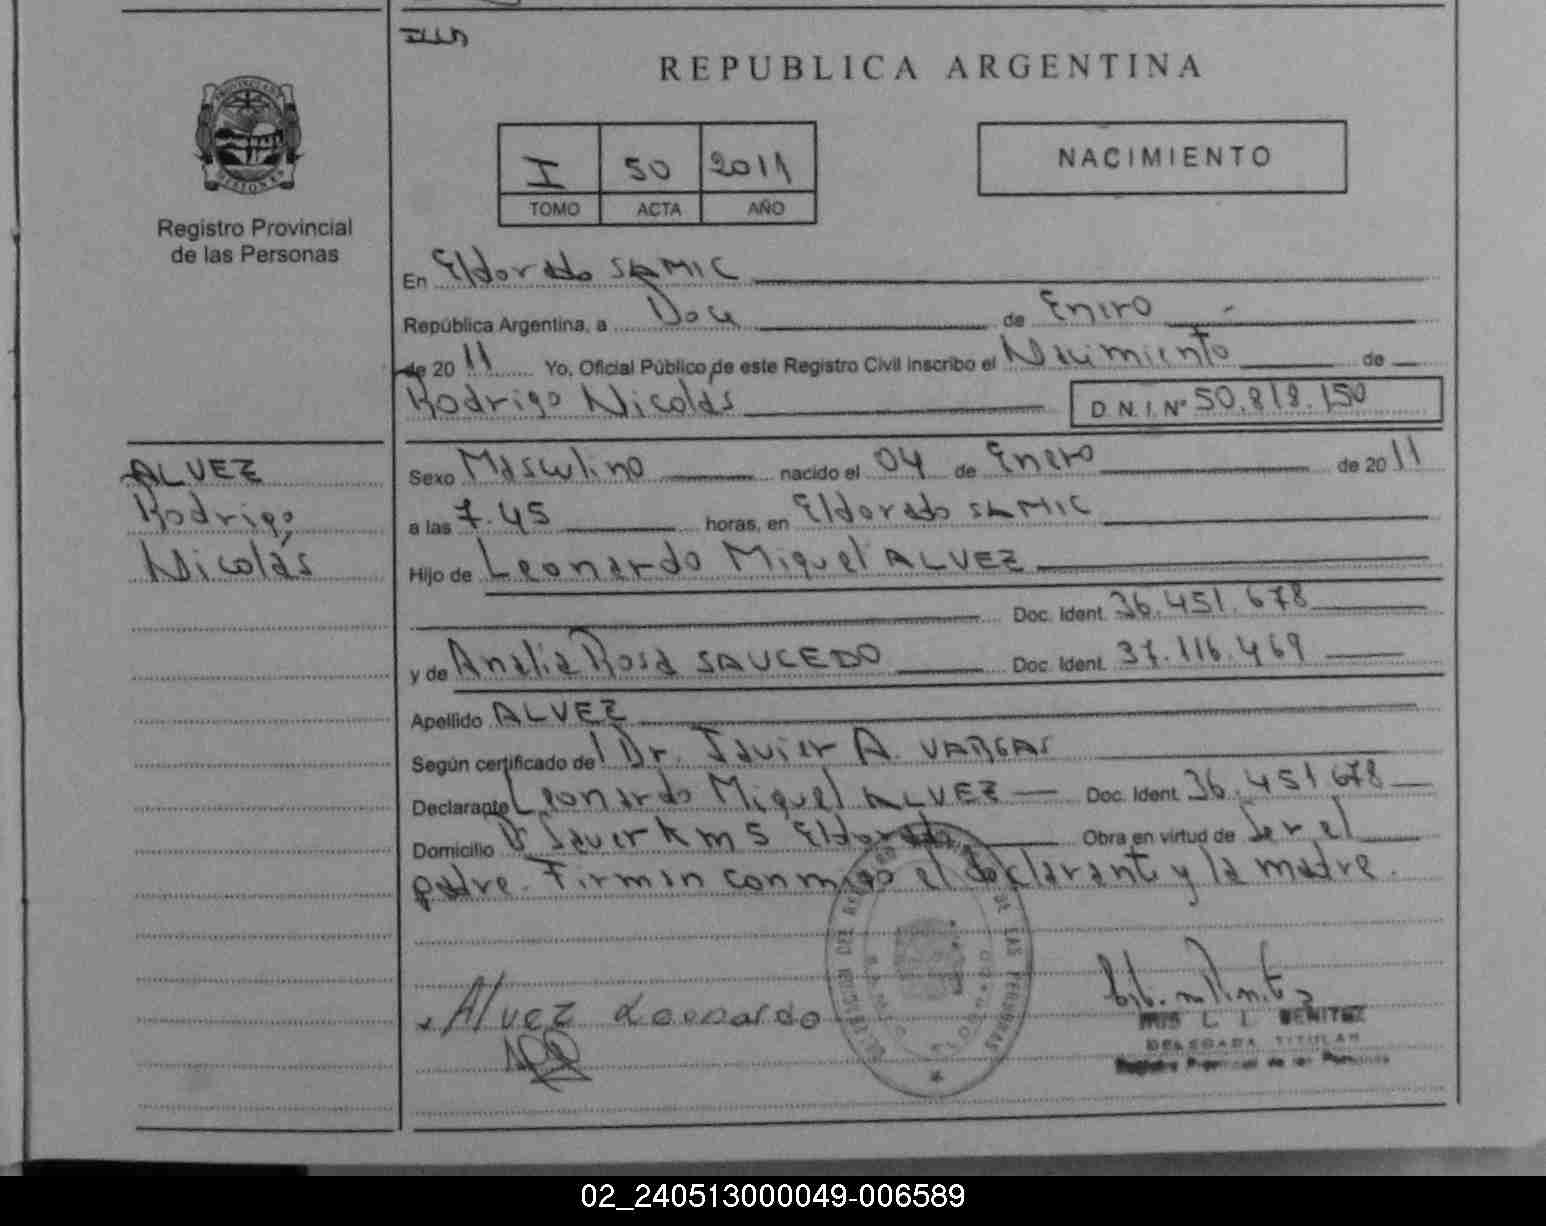 REPUBLICA ARGENTINA
PROVINCIA DE
MISIONES
Registro Provincial
de las Personas
I 50 2011
TOMO ACTA AÑO
NACIMIENTO
En Eldorado SAMIC
República Argentina, a Doce de Enero
de 2011 Yo, Oficial Público de este Registro Civil inscribo el Nacimiento de
Rodrigo Nicolás D.N.I. Nº 50.818.150
ALVEZ
Rodrigo
Nicolás
Sexo Masculino nacido el 04 de Enero de 2011
a las 7.45 horas, en Eldorado SAMIC
Hijo de Leonardo Miguel ALVEZ
Doc. Ident. 36.451.678
y de Analia Rosa SAUCEDO Doc. Ident. 37.116.469
Apellido ALVEZ
Según certificado del Dr. Javier A. VARGAS
Declarante Leonardo Miguel ALVEZ Doc. Ident. 36.451.678
Domicilio Km 5 Eldorado Obra en virtud de Ser el
padre. Firman conmigo el declarante y la madre.
Alvez Leonardo
L. I. BENITEZ
DELEGADA TITULAR
Registro Provincial de las Personas
02_240513000049-006589